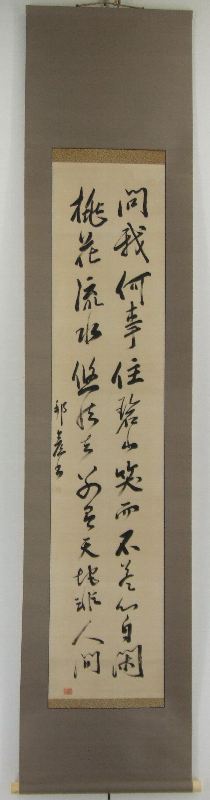 問我何事住碧山咲而不荅心自閑
桃花流水悠然去別有天地非人間